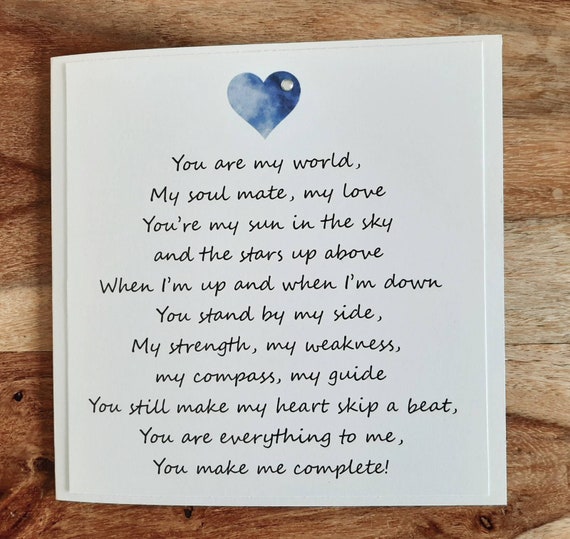 You are my world,
My soul mate, my love
You're my sun in the sky
and the stars up above
When I'm up and when I'm down
You stand by my side,
My strength, my weakness,
my compass, my guide
You still make my heart skip a beat,
You are everything to me,
You make me complete!